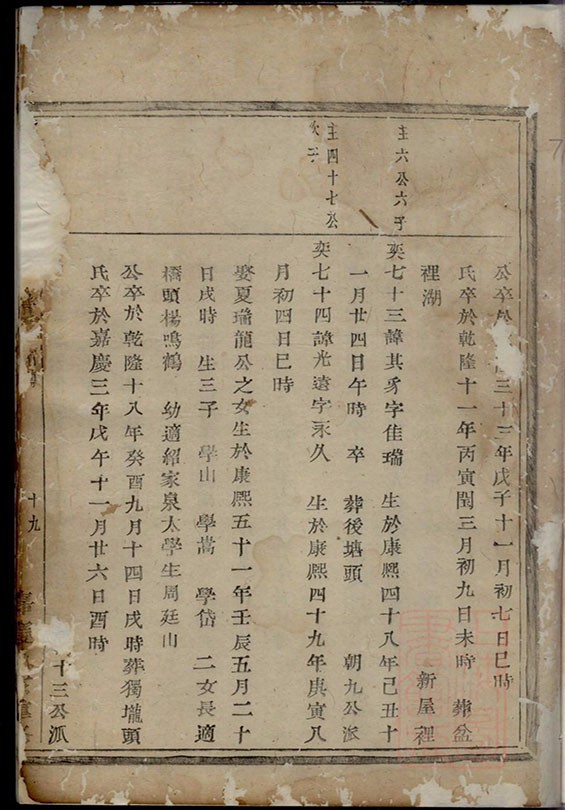 公卒於三十三年戊子十一月初七日巳時
氏卒於乾隆十一年丙寅閏三月初九日未時 葬盆
裡湖 新屋裡
主六公六子
奕七十三諱其多字佳瑞 生於康熙四十八年己丑十
一月廿四日午時 卒 葬後塘頭 朝九公派
主四十七公
次子
奕七十四諱光遠字永久 生於康熙四十九年庚寅八
月初四日巳時
娶夏瑞龍公之女生於康熙五十一年壬辰五月二十
日戌時 生三子 學山 學嵩 學岱 二女長適
橋頭楊鳴鶴 幼適紹家泉太學生周廷山
公卒於乾隆十八年癸酉九月十四日戌時葬獨壠頭
氏卒於嘉慶三年戊午十一月廿六日酉時
十三公派
十九